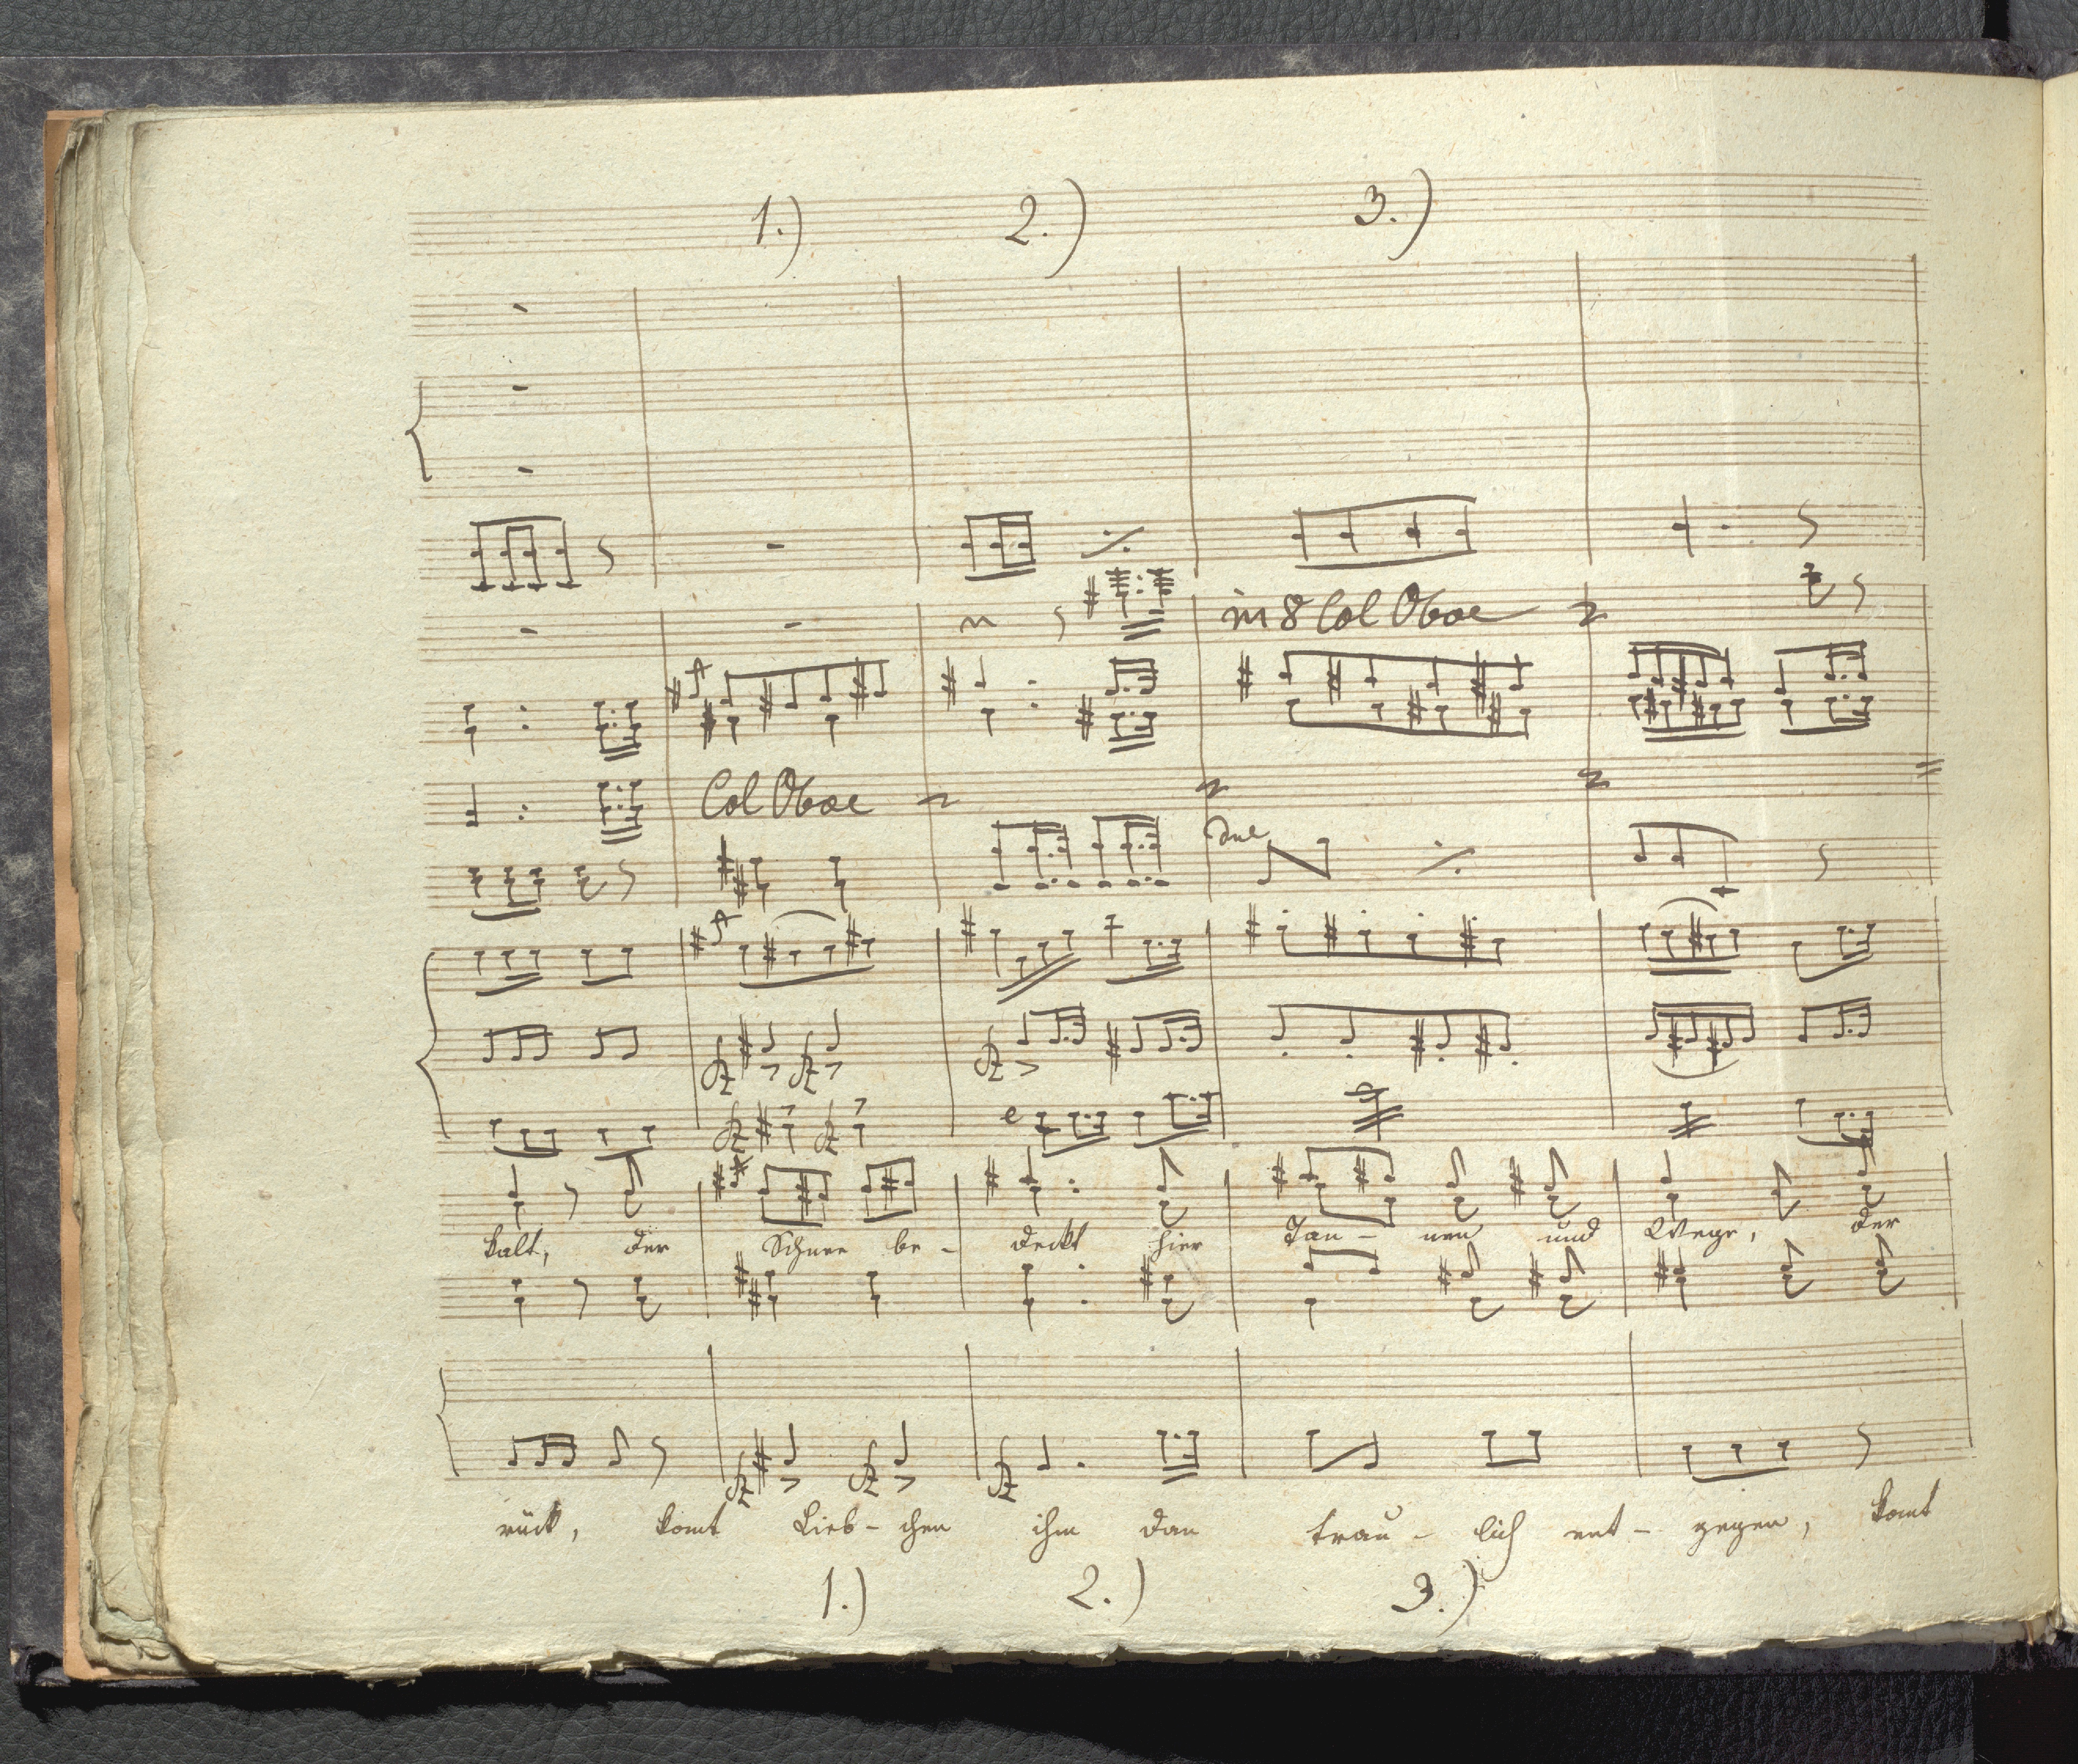 1.) 2.) 3.)
in 8 Col Oboe
Col Oboe
due
kalt, der Schnee be- deckt hier Tan- nen und Wege, der
rück, komt Lieb- chen ihm dan trau- lich ent- gegen, komt
1.) 2.) 3.)